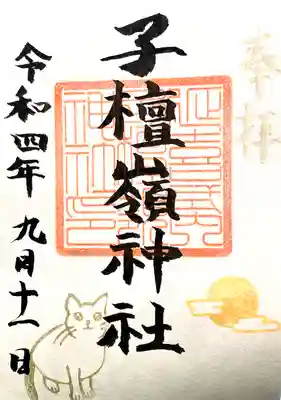 奉拝
子檀嶺神社
令和四年 九月十一日